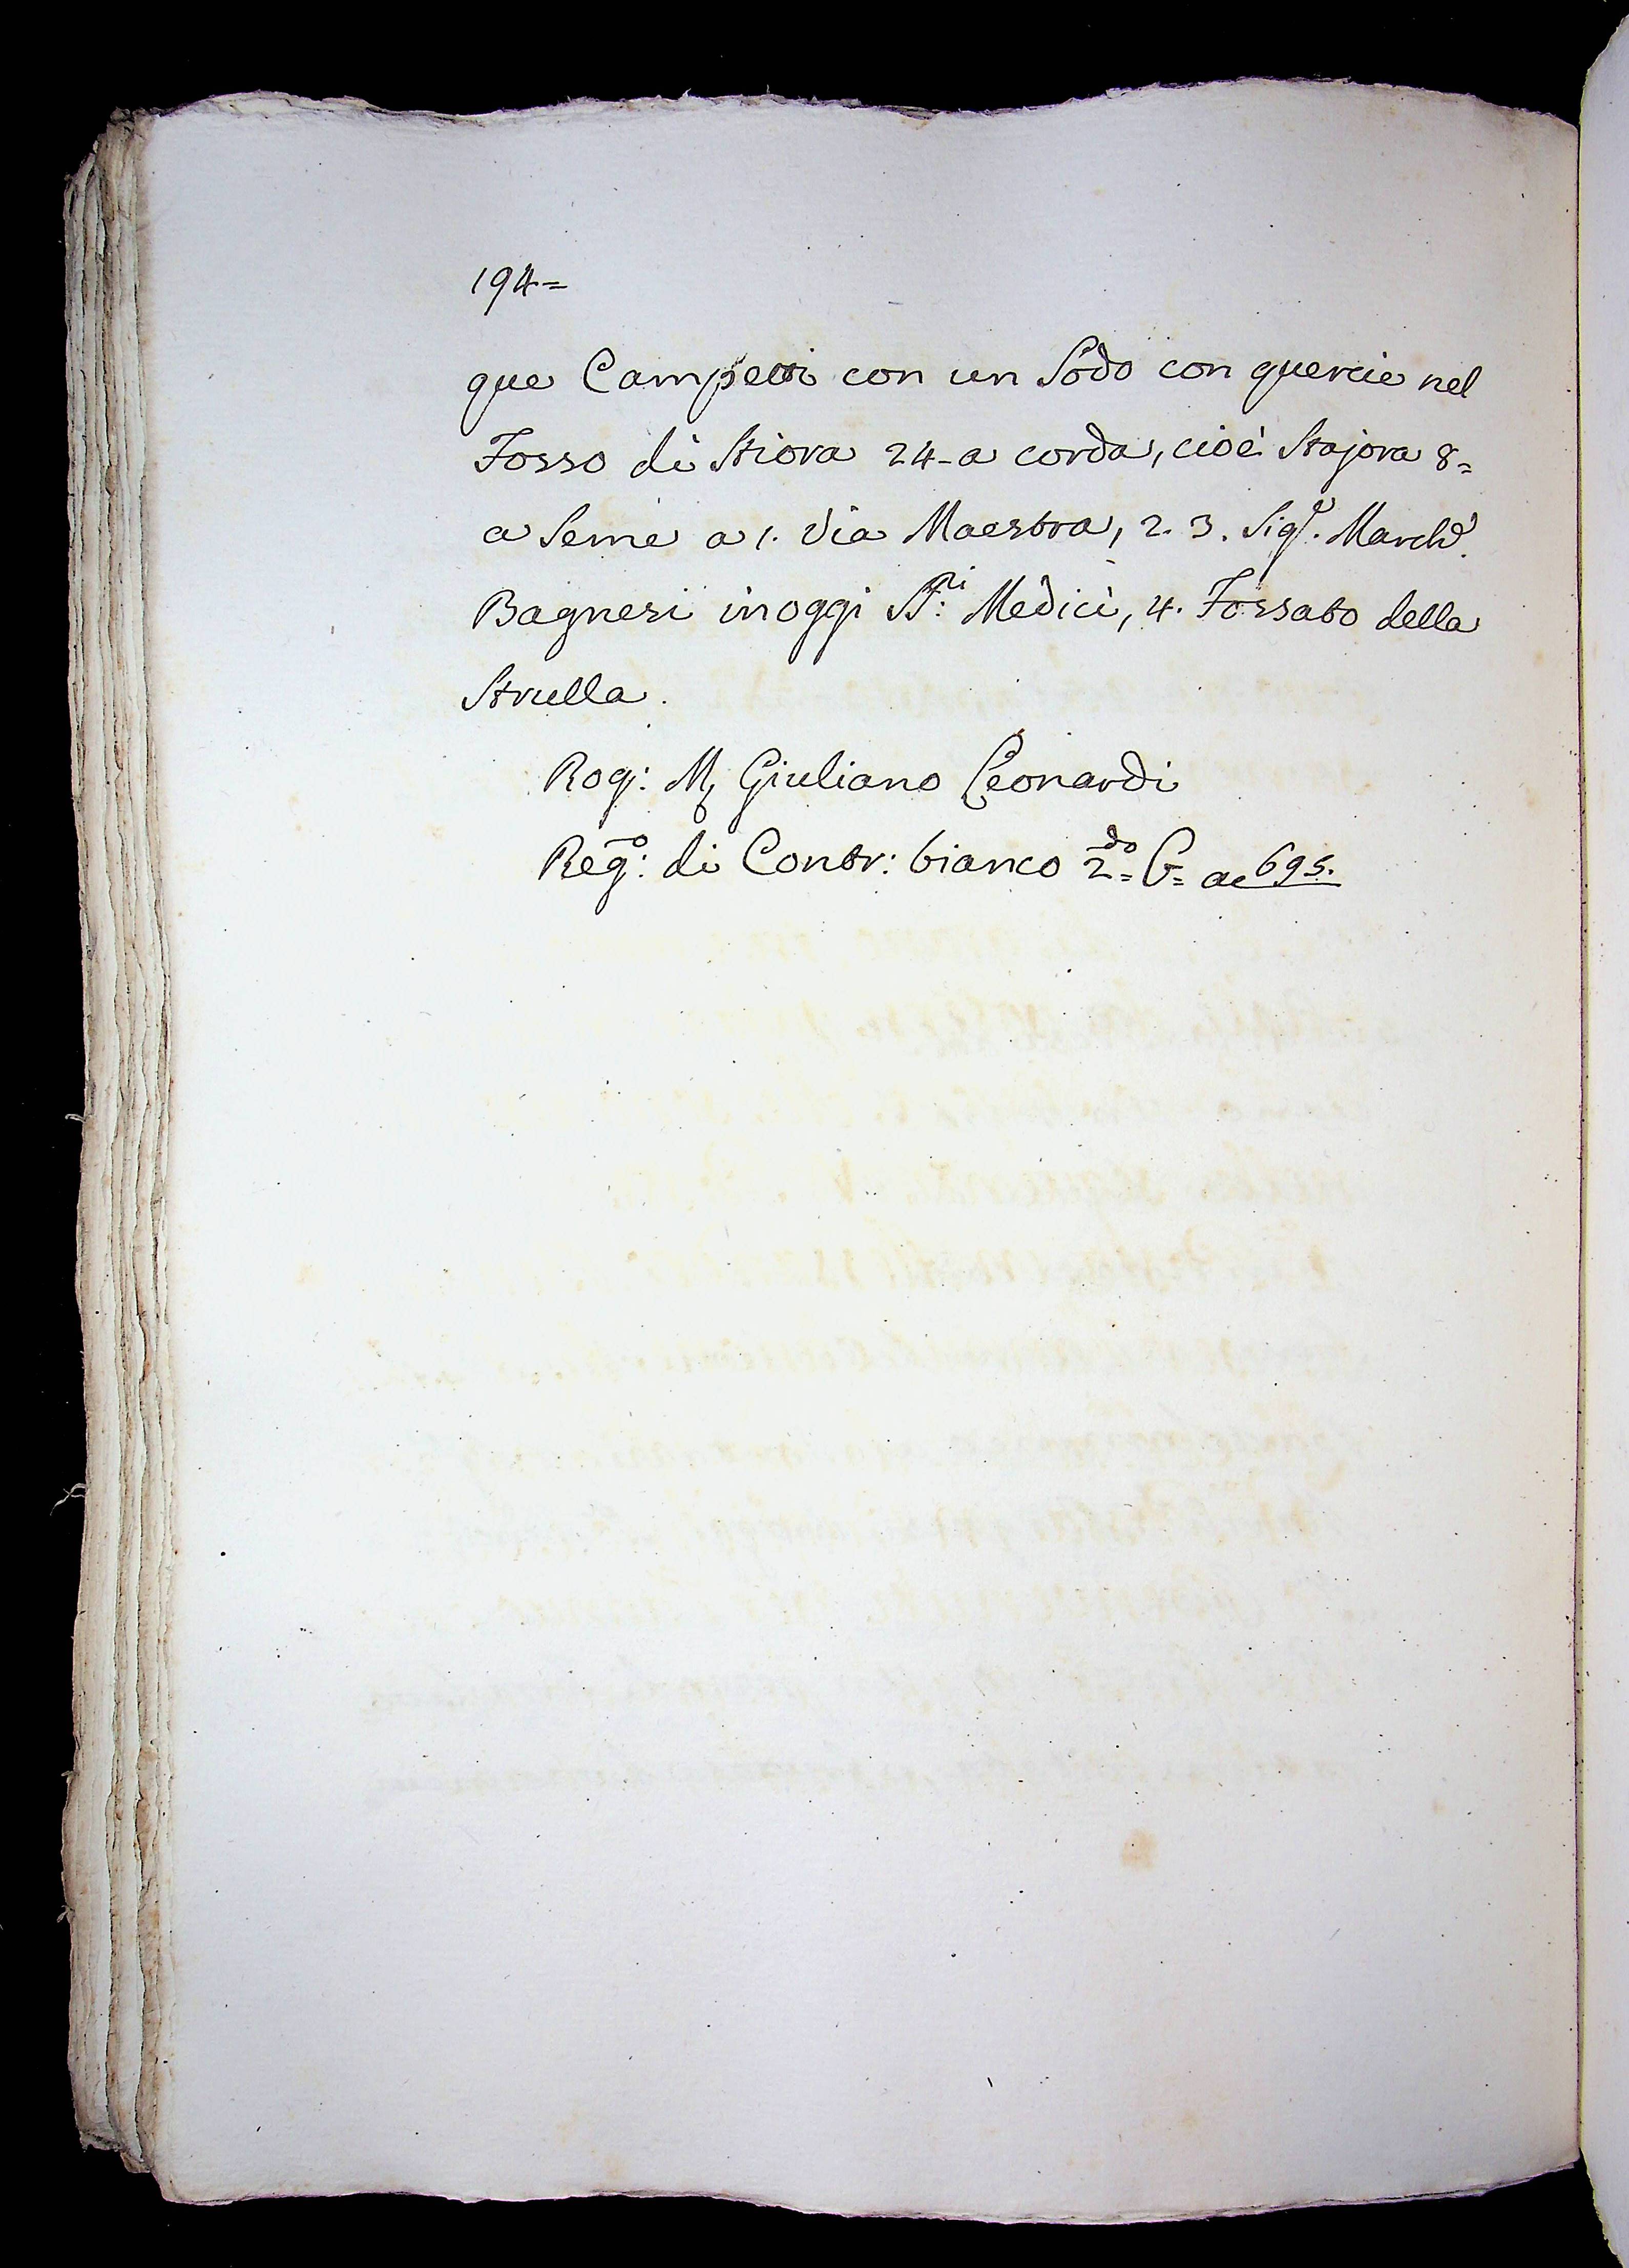 194=
que Campetti con un Sodo con quercie nel
Fosso di Stiora 24- a corda, cioè Stajora 8=
a Seme a 1. Via Maestra, 2. 3. Sig.e March.e
Bagnesi in oggi SS:ri Medici, 4. Fossato della
Strulla.
Rog: M, Giuliano Leonardi
Reg:o di Contr: bianco 2=do G= ac 695.